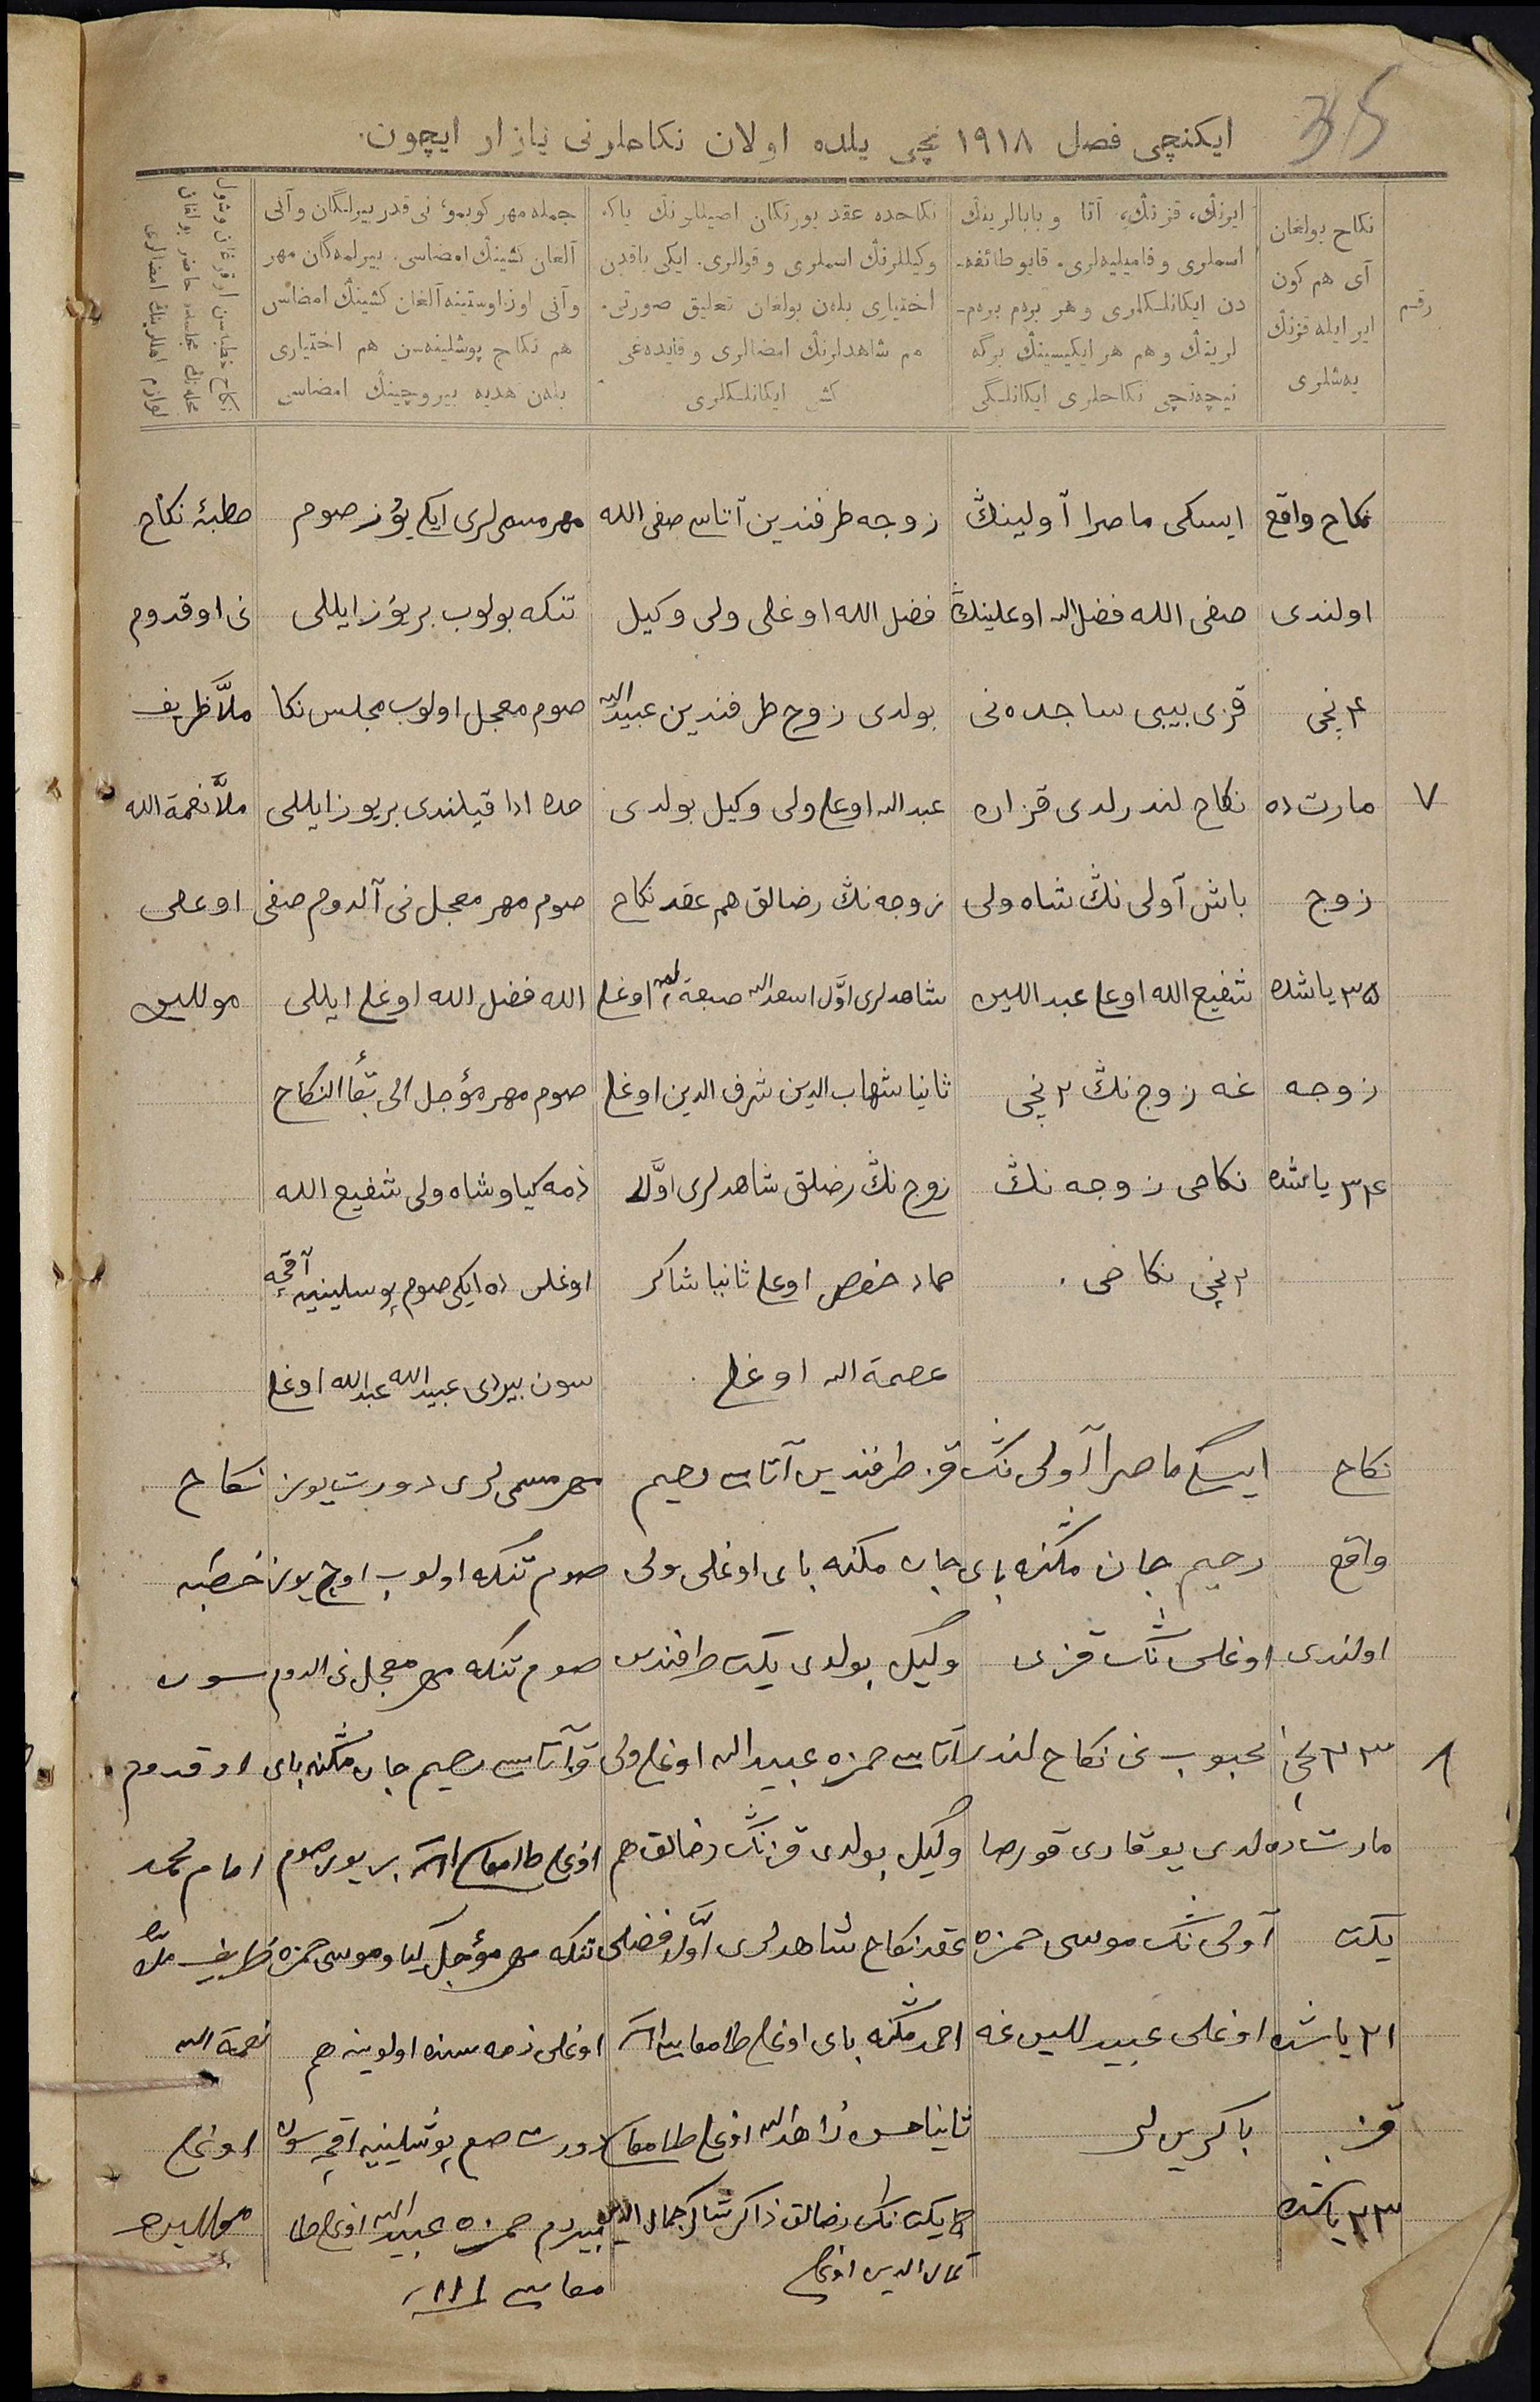 35
ایکنچی فصل ١٩١٨ نچی یلده اولان نکاحلرنی یازار ایچون.
رقم
نکاح بولغان
آی هم کون
ایر ایله قزنڭ
یه‌شلری
ایرنڭ، قزنڭ، آتا و بابالرینڭ
اسملری و فامیلیه‌لری. قایو طائفه‌-
دن ایکانلکلری و هر برهم برهم-
لرینڭ و هم هر ایکیسینڭ برگه
نیچه‌نچی نکاحلری ایکانلگی
نکاحده عقد یورتکان اصیللرنڭ یاکه
وکیللرنڭ اسملری و قوللری. ایکی یاقدن
اختیاری بلەن بولغان تعلیق صورتی.
هم شاهدلرنڭ امضالری و قایده‌غی
کشی ایکانلکلری
جمله مهر کوبمو، نی قدر بیرلگان و آنی
آلغان کشینڭ امضاسی. بیرلمه‌گان مهر
و آنی اوز اوستینه آلغان کشینڭ امضاسی
هم نکاح پوشلینه‌سن هم اختیاری
بلەن هدیه بیروچینڭ امضاسی
نکاح خطبەسن اوقوغان و شول
مجلسده حاضر بولغان
امضالری
نکاح واقع
اولندی
۴ نچی
مارت ده
زوج
٣۵ یاشده
زوجه
٣۴ یاشده
٧
ایسکی ماصرا آولینڭ
صفی الله فضل الله اوغلینڭ
قزی بیبی ساجده نی
نکاح لندرلدی قزاره
باش آولی نڭ شاه ولی
شفیع الله اوغلی عبداللین
غه زوج نڭ ٢ نچی
نکاحی زوجه نڭ
٢ نچی نکاحی.
زوجه طرفندین آتاسی صفی الله
فضل الله اوغلی ولی وکیل
بولدی زوج طرفندین عبیدالله
عبدالله اوغلی ولی وکیل بولدی
زوجه نڭ رضالق هم عقد نکاح
شاهدلری اوّل اسعدالله صبغة الله اوغلی
ثانیا شهاب الدین شرف الدین اوغلی
زوج نڭ رضلق شاهدلری اوّلا
حماد اوغلی ثانیا شاکر
عصمة الله اوغلی
مهر مسمی لری ایکی یوز صوم
تنکه بولوب بریوز ایللی
صوم معجل اولوب مجلس نکا
حده ادا قیلندی بریوز ایللی
صوم مهر معجل نی آلدوم صفی
الله فضل الله اوغلی ایللی
صوم مهر مؤجل الی بقأ النکاح
ذمه کیاو شاه ولی شفیع الله
اوغلی ده ایکی صوم پوسلینیه آقچه
سون بیردی عبیدالله عبدالله اوغلی
خطبۀ نکاح
نی اوقدوم
ملاّ ظریف
ملاّ نعمة الله
اوغلی
نکاح
واقع
اولندی
٢٣ نچی
مارت ده
یکت
٢١ یاشده
قز
٢٣ یاشده
٨
ایسکی ماصرا آولی نڭ
رحیم جان مڭنه بای
اوغلی نڭ قزی
محبوب نی نکاح لندر
لدی یوقاری قورصا
آولی نڭ موسی حمزه
اوغلی عبیدللین غه
باکرین لر
قز طرفندین آتاسی رحیم
جان مکنه بای اوغلی ولی
وکیل بولدی یکت طرفندین
آتاسی حمزه عبیدالله اوغلی ولی
وکیل بولدی قزنڭ رضالق هم
عقد نکاح شاهدلری اوّلا فضلی
احمد مڭنه بای اوغلی
ثانیا حسن زاهدالله اوغلی
یکت نڭ رضالق ذاکر شاکر جمال الدین
کمال الدین اوغلی
مهر مسمی لری دورت یوز
صوم تنکه اولوب اوچ یوز
صوم تنکه مهر معجل نی الدوم
قز آتاسی رحیم جان مڭنه بای
اوغلی بریوز صوم
تنکه مهر مؤجل کیاو موسی حمزه
اوغلی ذمه سنده اولوینه هم
دورت صوم پوشلینیه اقچه سون
بیردم حمزه عبیدالله اوغلی
نکاح
خطبه
سون
اوقدوم
امام محمد
ظریف ملاّ
نعمة الله
اوغلی